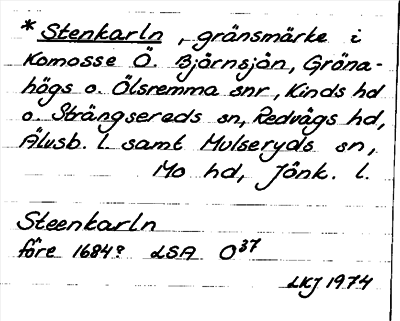 * Stenkarln, gränsmärke i
Komosse Ö. Björnsjön, Gröna-
högs o. Ölsremma snr, Kinds hd
o. Strängsereds sn, Redvägs hd,
Älvsb. l. samt Mulseryds sn,
Mo hd, Jönk. l.
Steenkarln
före 1684? LSA O37
LKJ 1974